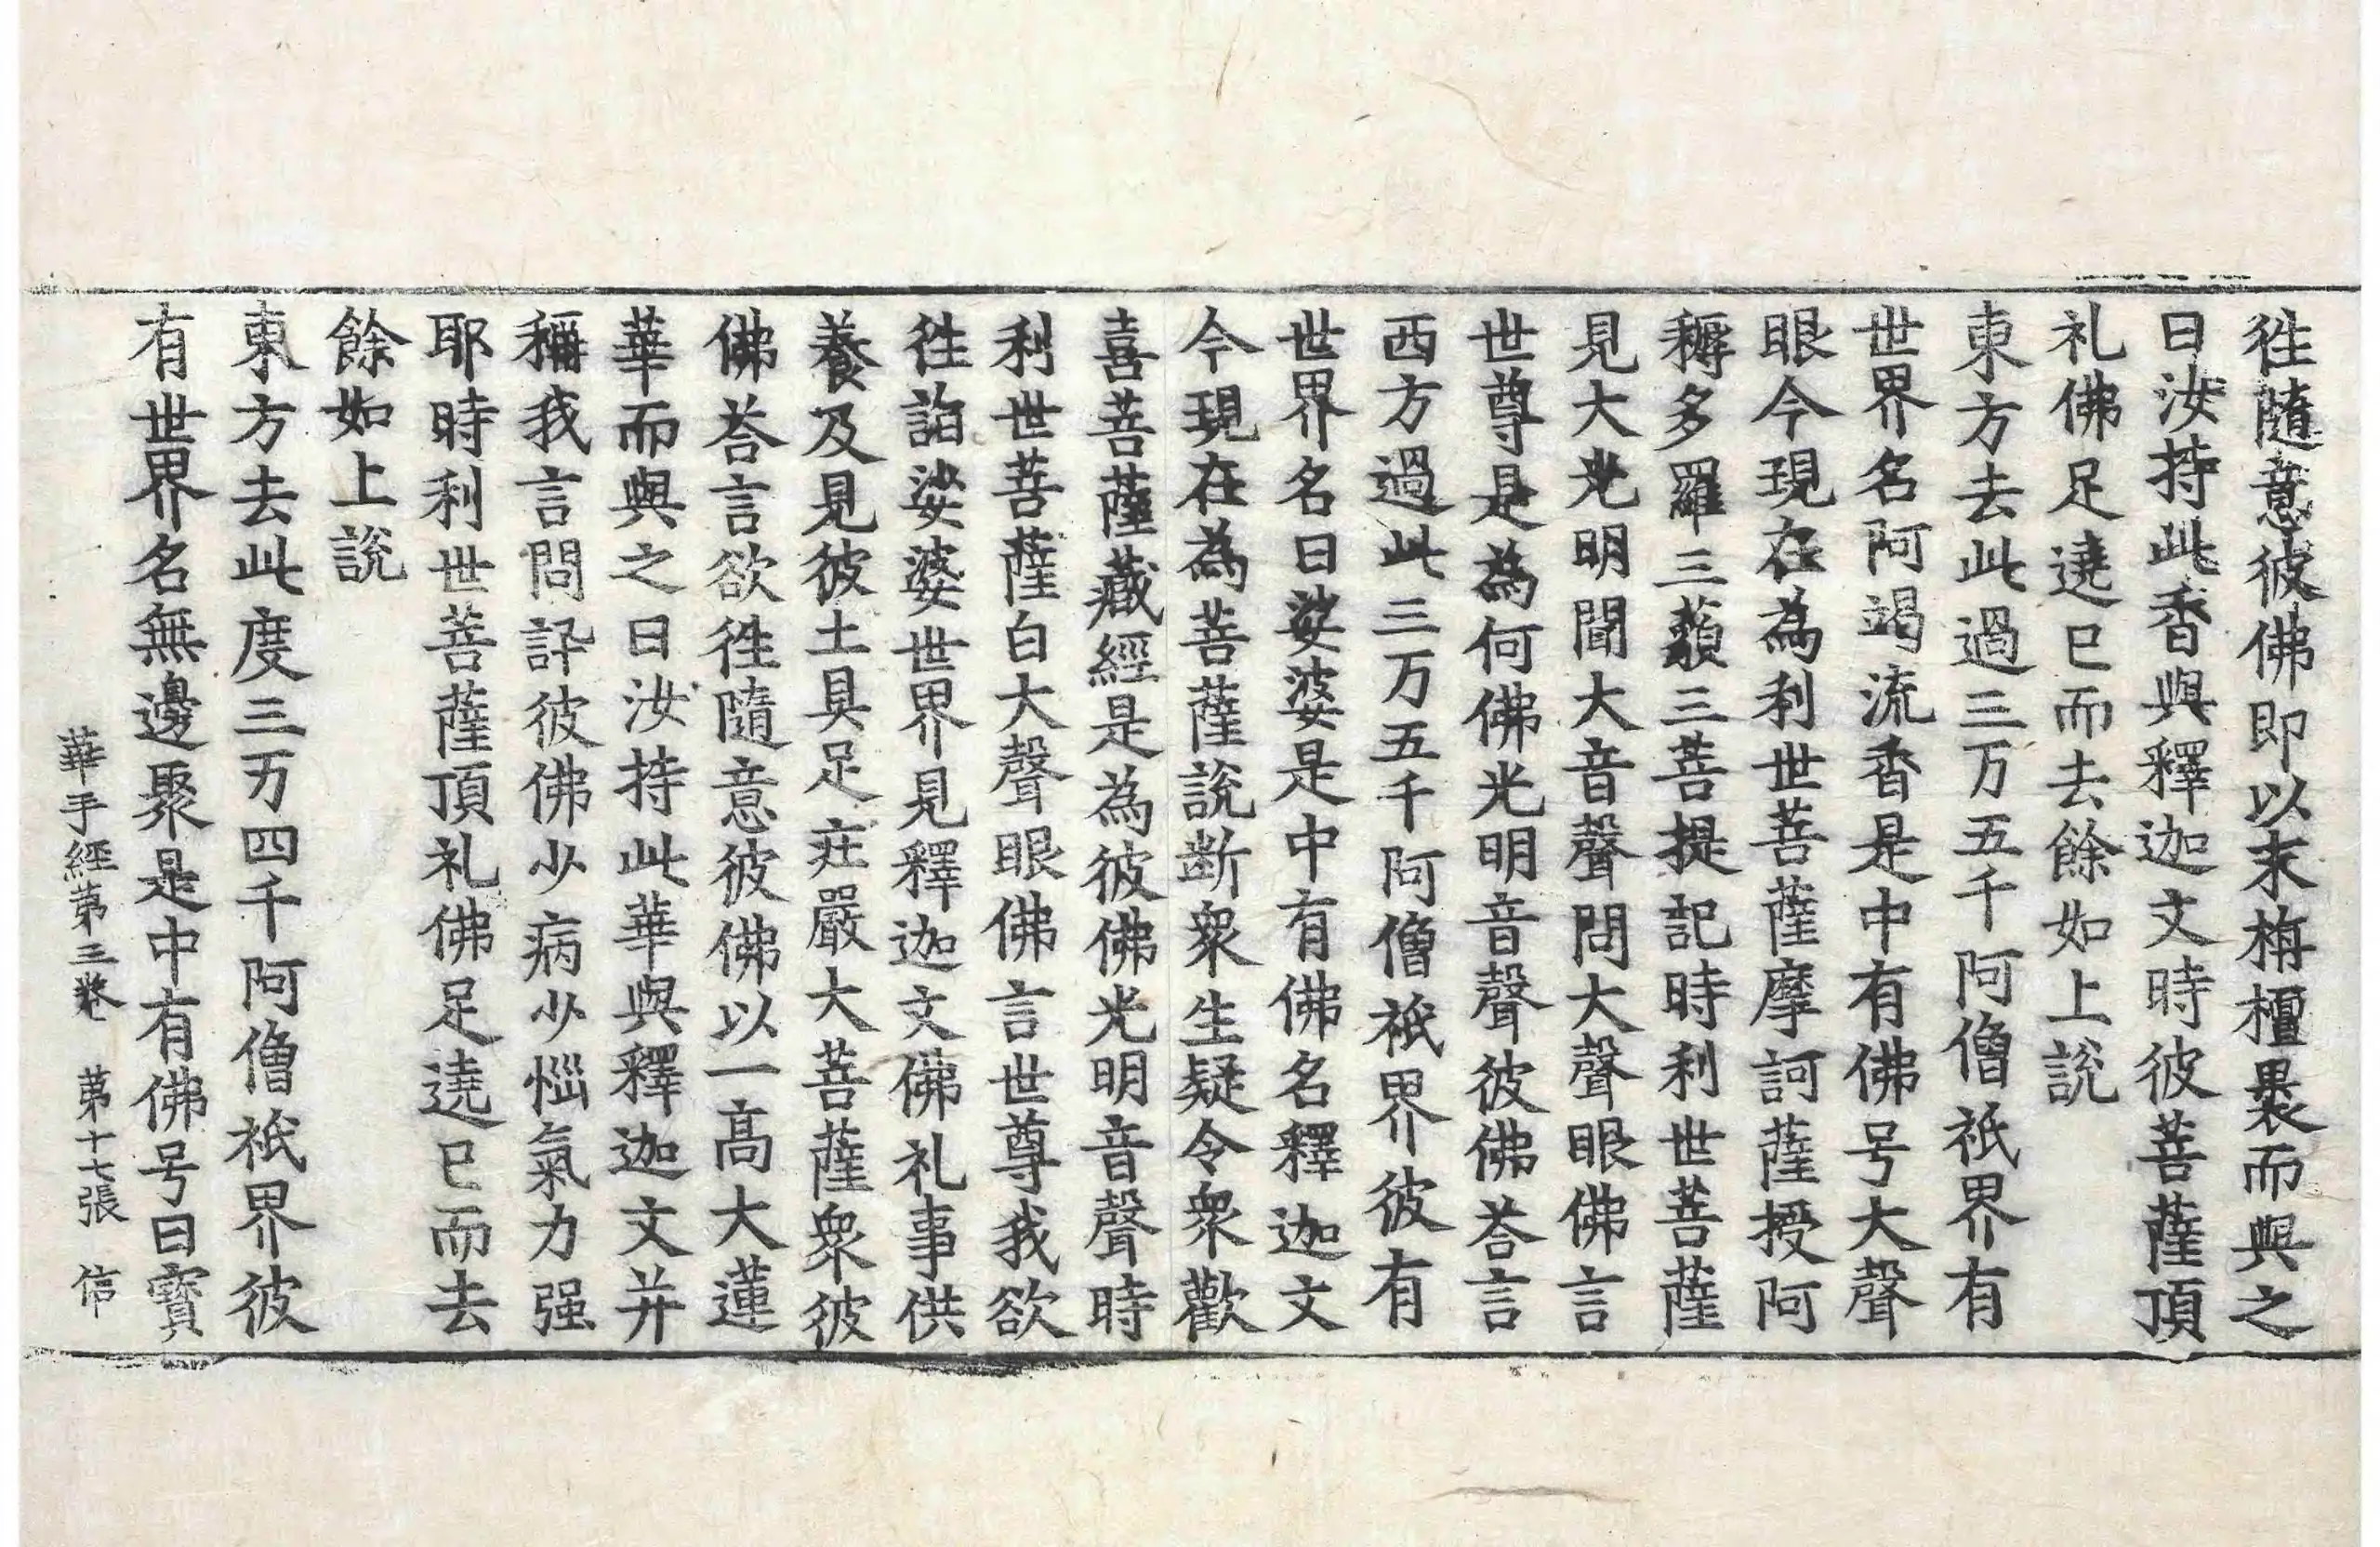 徃隨意彼佛即以末栴檀褁而與之
曰汝持此香與釋迦文時彼菩薩頂
礼佛足遶已而去餘如上說
東方去此過三万五千阿僧祇界有
世界名阿竭流香是中有佛号大聲
眼今現在為利世菩薩摩訶薩授阿
耨多羅三藐三菩提記時利世菩薩
見大光明聞大音聲問大聲眼佛言
世尊是為何佛光明音聲彼佛荅言
西方過此三万五千阿僧祇界彼有
世界名曰娑婆是中有佛名釋迦文
今現在為菩薩說断衆生疑令衆歡
喜菩薩藏經是為彼佛光明音聲時
利世菩薩白大聲眼佛言世尊我欲
徃詣娑婆世界見釋迦文佛礼事供
養及見彼土具足莊嚴大菩薩衆彼
佛荅言欲徃隨意彼佛以一高大蓮
華而與之曰汝持此華與釋迦文并
稱我言問訊彼佛少病少惱氣力强
耶時利世菩薩頂礼佛足遶已而去
餘如上說
東方去此度三万四千阿僧祇界彼
有世界名無邊聚是中有佛号曰寳
華手經第三卷 第十七張 信